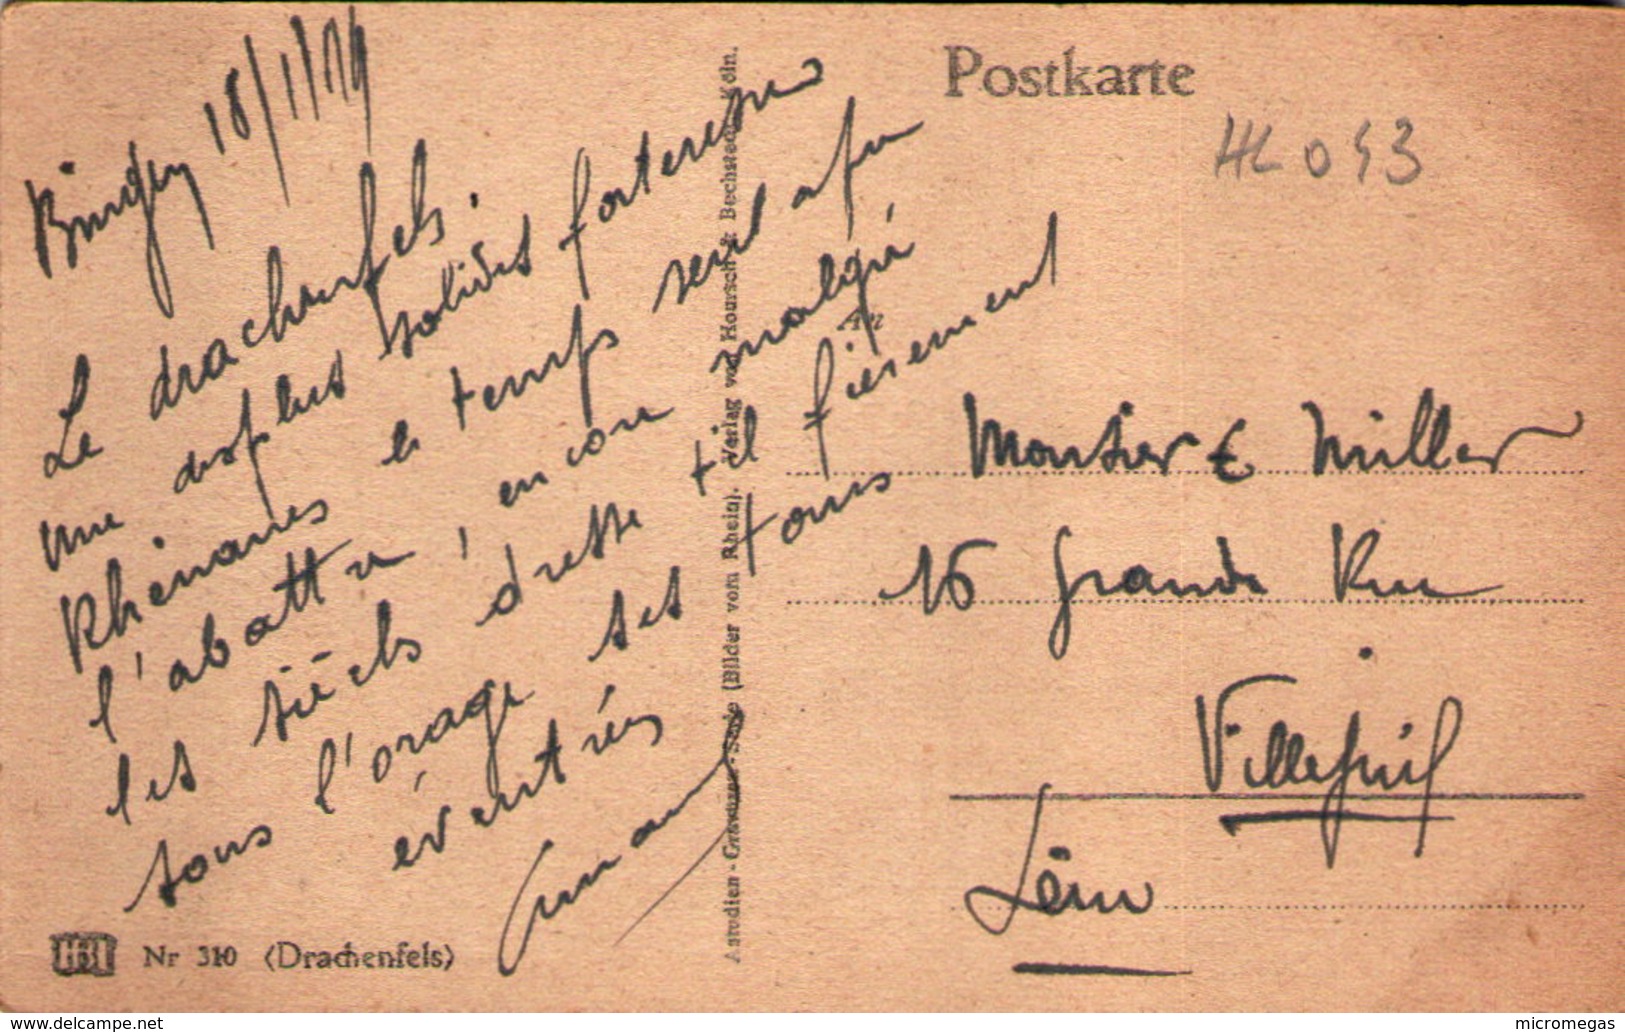 Bingen 18/1/19
Le drachenfels.
une des plus solides forteresses
Rhénanes le temps seul a pu
l'abattu, encore malgré
les siècls dresse t'il fièrement
sous l'orage ses tours
éventrées
Postkarte
HL 043
An
Monsier E Müller
16 Grande Rue
Villejuif
Seine
Nr 310 (Drachenfels)
Astudien - Gravure - Serie (Bilder vom Rhein). Verlag von Hoursch & Bechstedt, Köln.
delcampe.net
micromegas